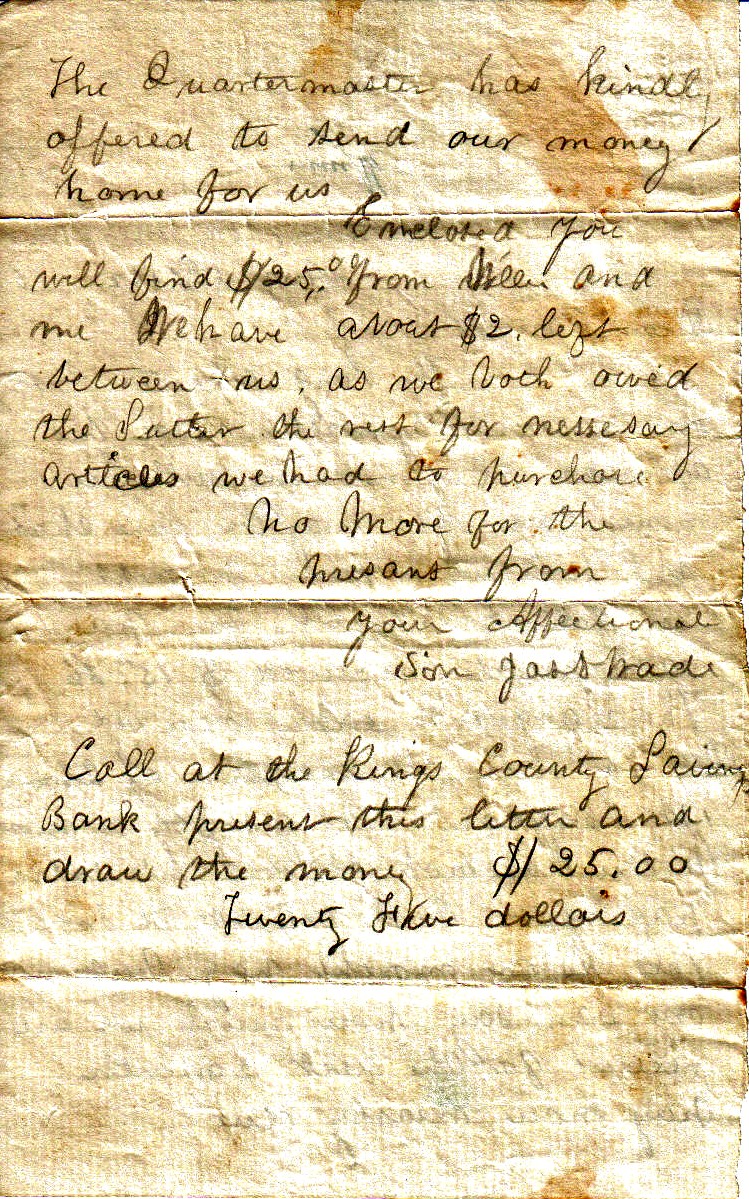 The Quartermaster has kindly
offered to send our money
home for us
Enclosed you
will find $25.00 from Allen and
me We have about $2. left
between us, as we both owed
the Sutter the rest for nessesary
articles we had to purchase
No More for the
presant from
your Affectionat
Son Jas
Call at the Kings County Savings
Bank present this letter and
draw the money $25.00
Twenty Five dollars